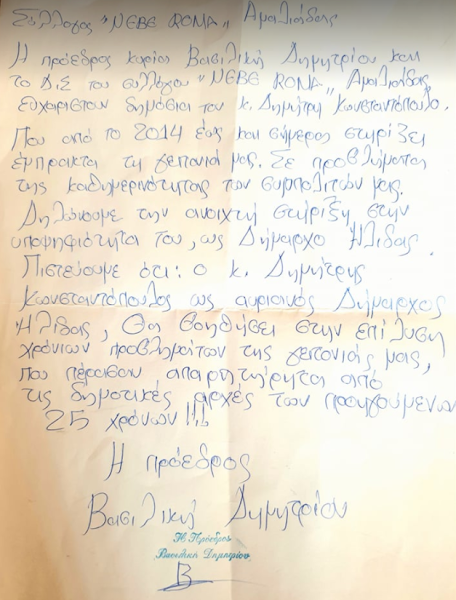 Σύλλογος "NEBE ROMA" Αμαλιάδας
Η πρόεδρος κυρία Βασιλική Δημητρίου και
το Δ.Σ του συλλόγου "NEBE ROMA" Αμαλιάδας
Ευχαριστούν δημόσια τον κ. Δημήτρη Κωνσταντόπουλο.
Που από το 2014 έως και σήμερα στηρίζει
έμπρακτα τη γειτονιά μας. Σε προβλήματα
της καθημερινότητας των συμπολιτών μας.
Δηλώνουμε την ανοιχτή στήριξη στην
υποψηφιότητα του, ως Δήμαρχο Ήλιδας.
Πιστεύουμε ότι: ο κ. Δημήτρης
Κωνσταντόπουλος ως αυριανός Δήμαρχος
Ήλιδας, Θα βοηθήσει στην επίλυση
χρόνιων προβλημάτων της γειτονιάς μας,
που πέρασαν απαρητήρητα από
τις δημοτικές αρχές των προηγούμενων
25 χρόνων!!!
Η πρόεδρος
Βασιλική Δημητρίου
Η Πρόεδρος
Βασιλική Δημητρίου
Β